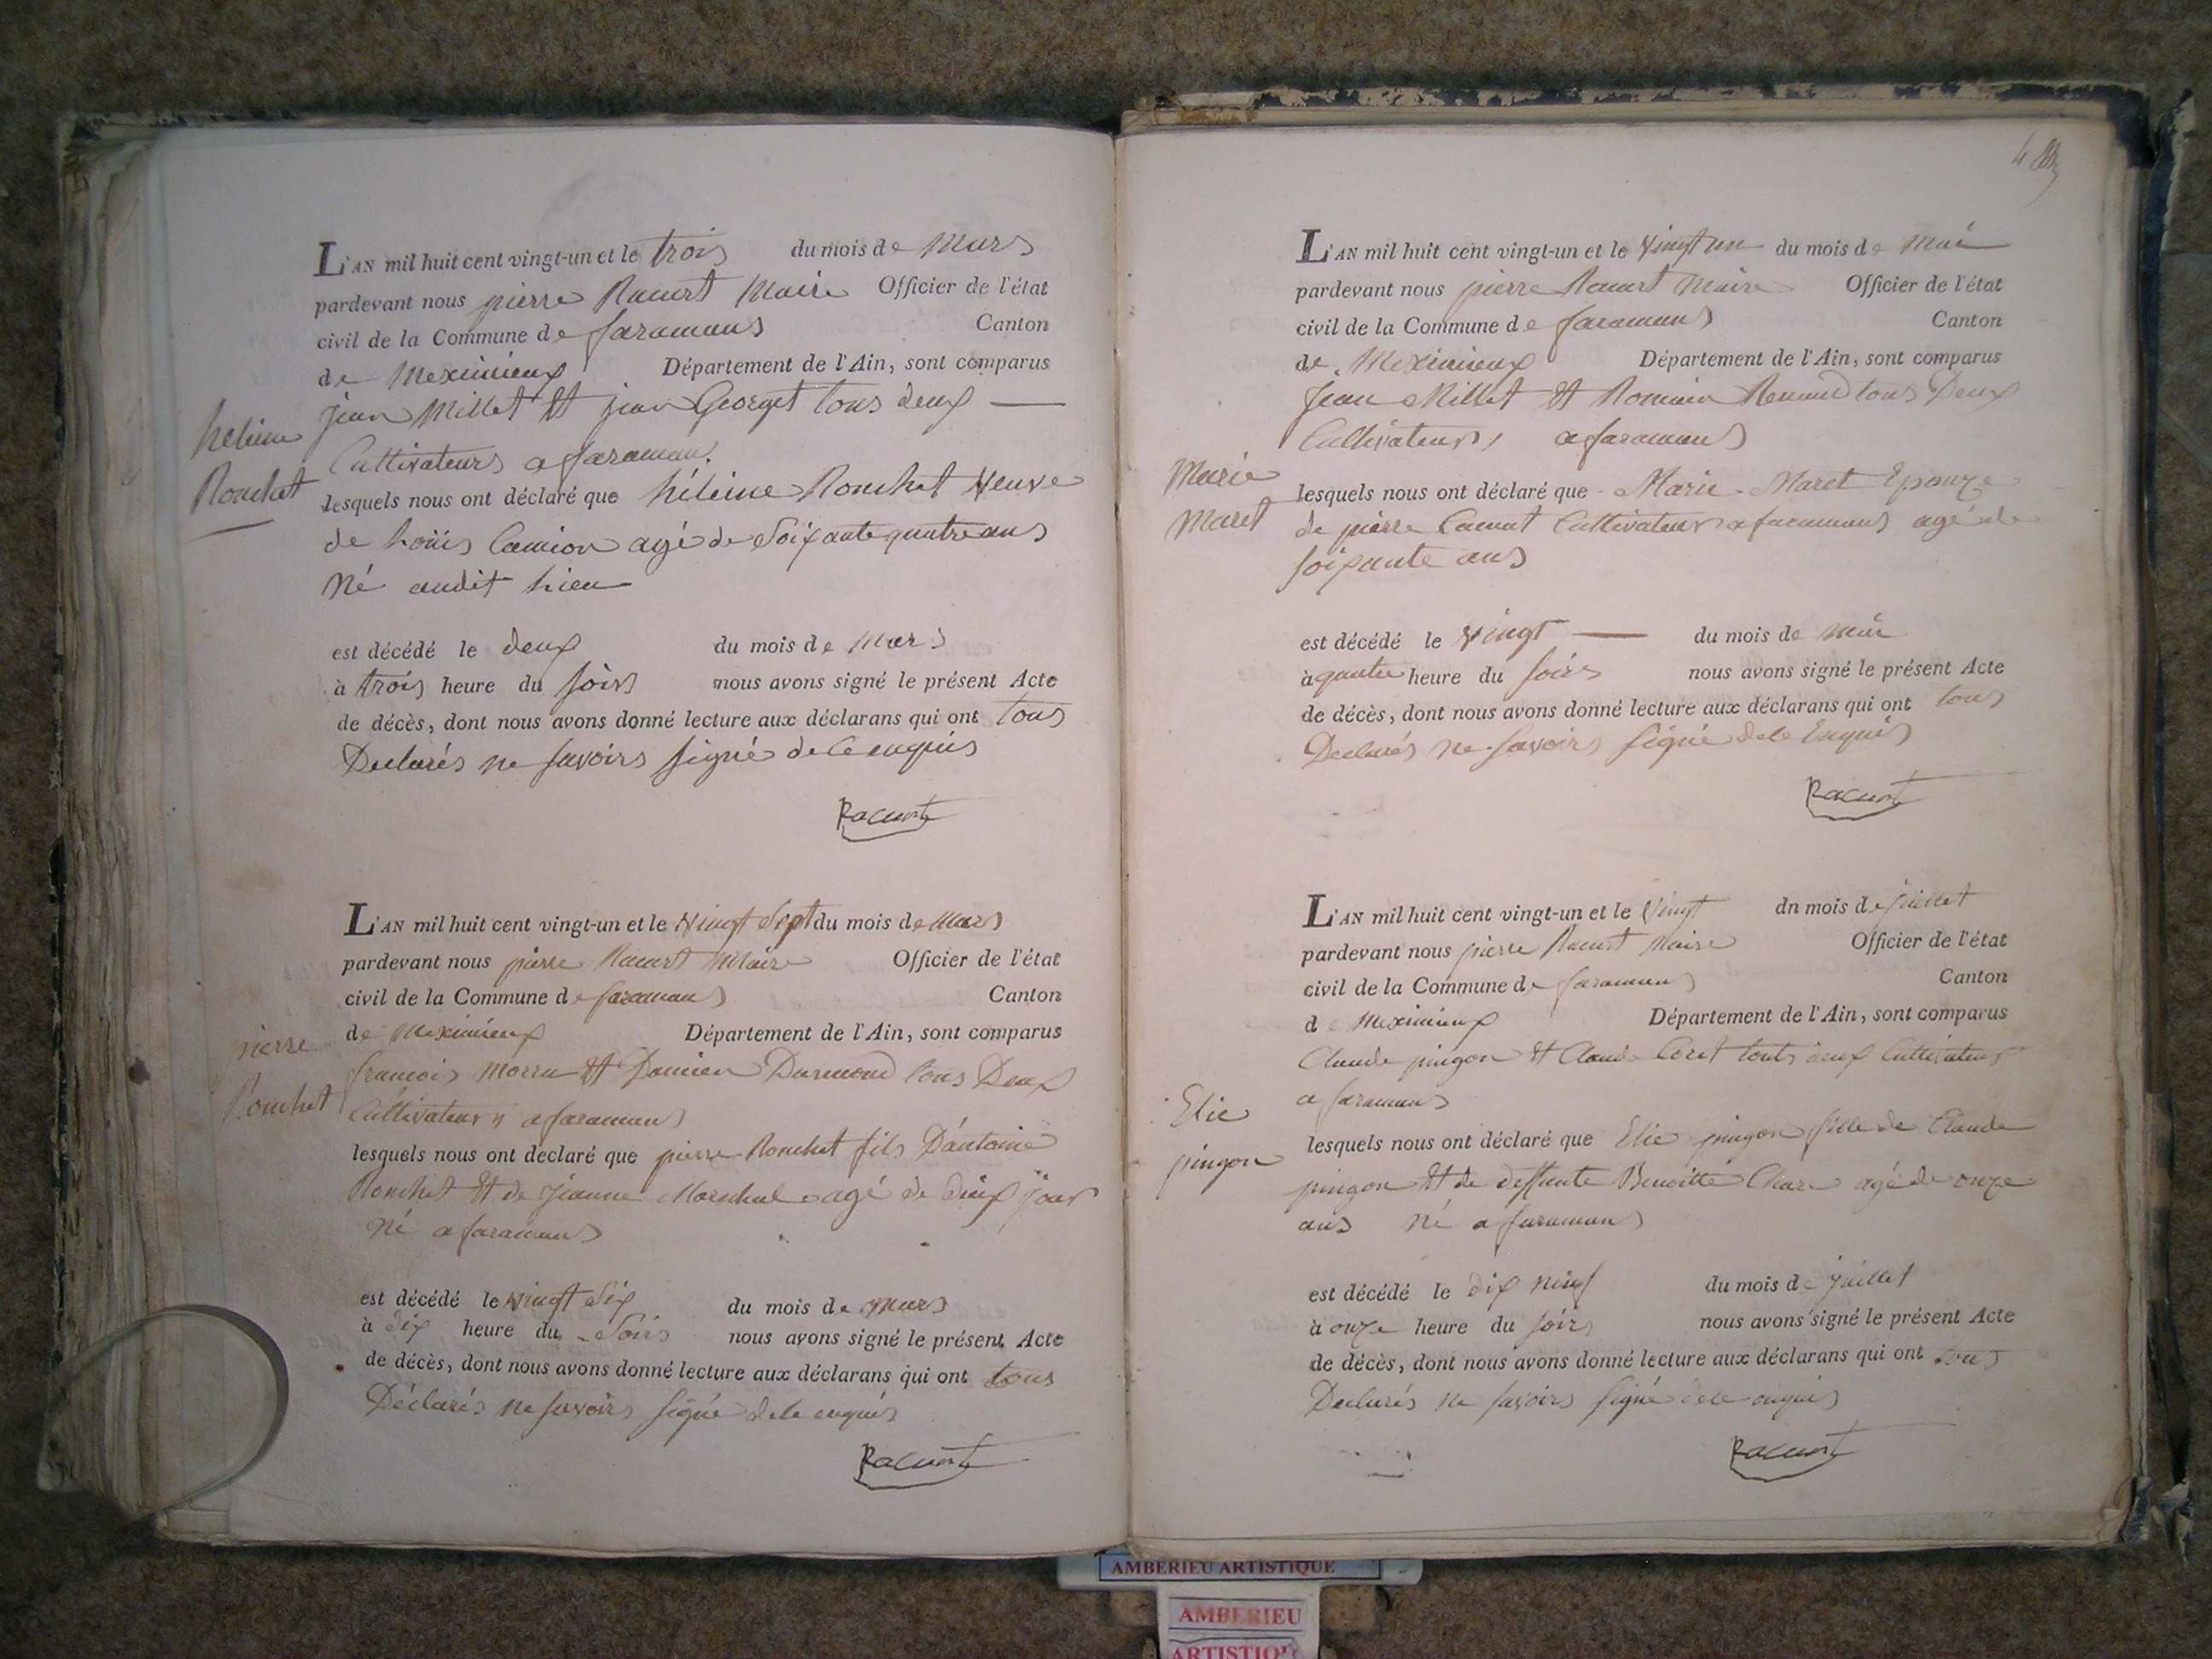 L'AN mil huit cent vingt-un et le trois du mois de Mars
pardevant nous pierre Racurt Maire Officier de l'état
civil de la Commune de faramans Canton
de Meximieux Département de l'Ain, sont comparus
jean Millet et jean Georget tous deux
Cultivateurs a faramans
heleine
Ronchet
lesquels nous ont déclaré que héleine Ronchet Veuve
de Loüis Camion agé de Soixante quatre ans
Né audit Lieu
est décédé le deux du mois de Mars
à trois heure du soirs nous avons signé le présent Acte
de décès, dont nous avons donné lecture aux déclarans qui ont tous
Declarés ne savoirs signé de ce enquis
Racurt
L'AN mil huit cent vingt-un et le Vingt Sept du mois de Mars
pardevant nous pierre Racurt Maire Officier de l'état
civil de la Commune de faramans Canton
de Meximieux Département de l'Ain, sont comparus
pierre
Ronchet
francois et Damien tous Deux
Cultivateurs a faramans
lesquels nous ont declaré que pierre Ronchet fils D'antoine
Ronchet et de jeanne Marechal agé de jour
Né a faramans
est décédé le Vingt Six du mois de Mars
à dix heure du Soirs nous avons signé le présent Acte
de décès, dont nous avons donné lecture aux déclarans qui ont tous
Déclarés ne savoirs signé de ce enquis
Racurt
L'AN mil huit cent vingt-un et le Vingt un du mois de Mai
pardevant nous pierre Racurt Maire Officier de l'état
civil de la Commune de faramans Canton
de Meximieux Département de l'Ain, sont comparus
Jean Millet et Romain Renaud tous Deux
Cultivateurs a faramans
Marie
Maret
lesquels nous ont déclaré que Marie Maret Epouze
de pierre Cultivateur a faramans agé de
soixante ans
est décédé le Vingt du mois de mai
à quatre heure du soirs nous avons signé le présent Acte
de décès, dont nous avons donné lecture aux déclarans qui ont tous
Declarés ne savoirs signé de ce Enquis
Racurt
L'AN mil huit cent vingt-un et le Vingt dn mois de juillet
pardevant nous pierre Racurt Maire Officier de l'état
civil de la Commune de faramans Canton
de Meximieux Département de l'Ain, sont comparus
Claude pingon et Claude Coret touts deux Cultivateurs
a faramans
Elie
pingon
lesquels nous ont déclaré que Elie pingon fille de Claude
pingon et de deffunte Benoitte agé de onze
ans Né a faramans
est décédé le dix neuf du mois de juillet
à onze heure du soirs nous avons signé le présent Acte
de décès, dont nous avons donné lecture aux déclarans qui ont tous
Declarés ne savoirs signé de ce enquis
Racurt
AMBERIEU ARTISTIQUE
AMBERIEU
ARTISTIQUE